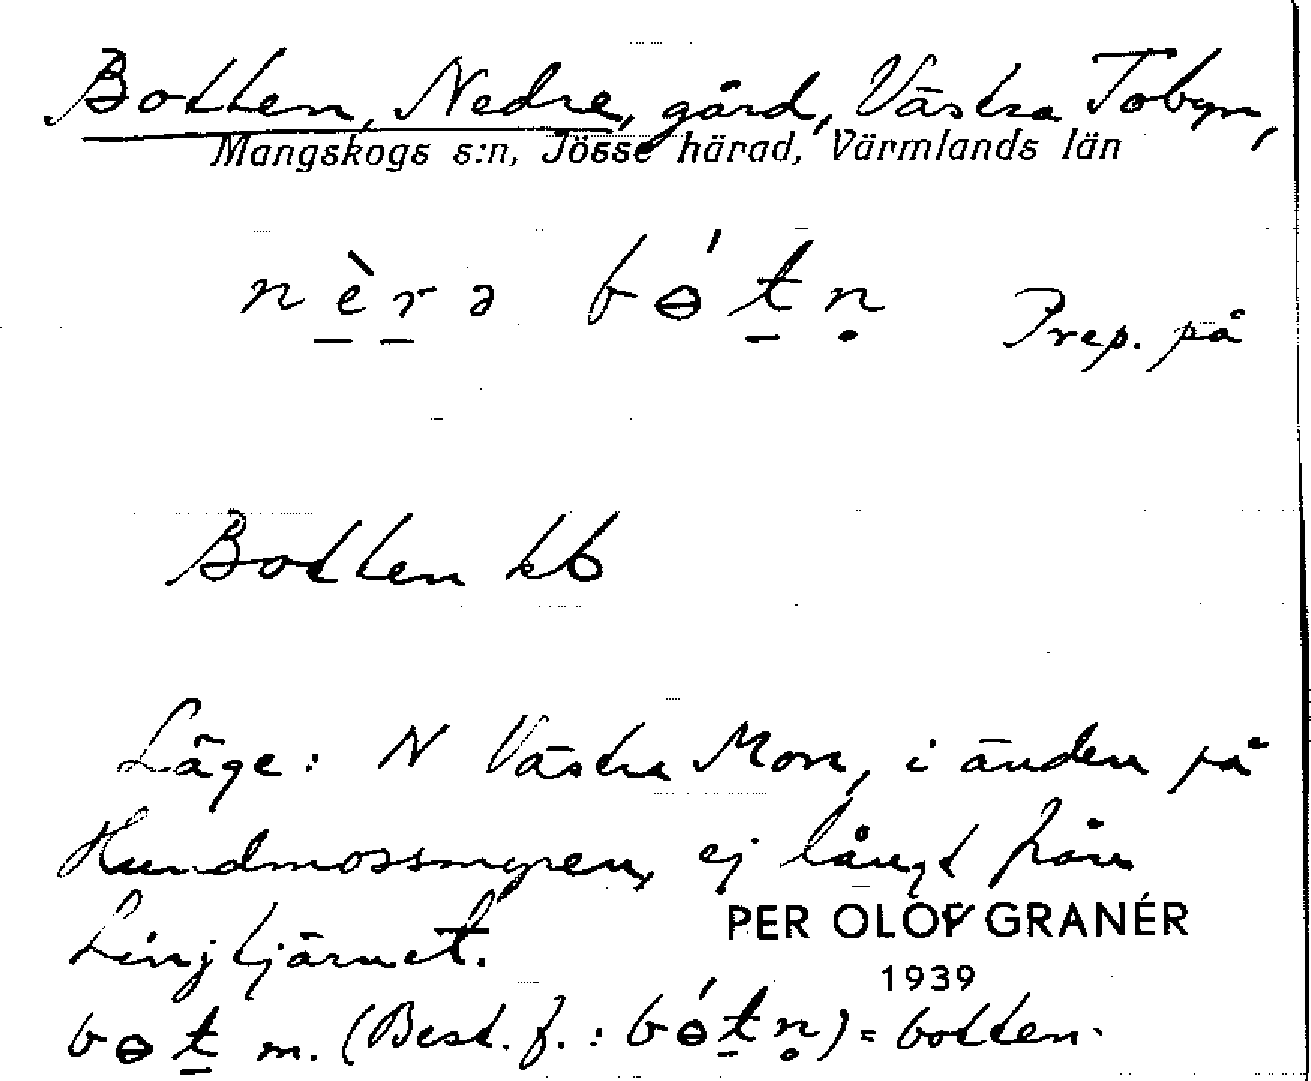 Botten, Nedre, gård, Västra Tobyn,
Mangskogs s:n, Jösse härad, Värmlands län
nè̱ṟə bɵ́ṯṇ Prep. på
Botten kb
Läge: N Västra Mon, i änden på
Hundmossmyren, ej långt från
Lingtjärnet.
PER OLOF GRANÉR
1939
bɵṯ m. (Best. f.: bɵ́ṯṇ) = botten.